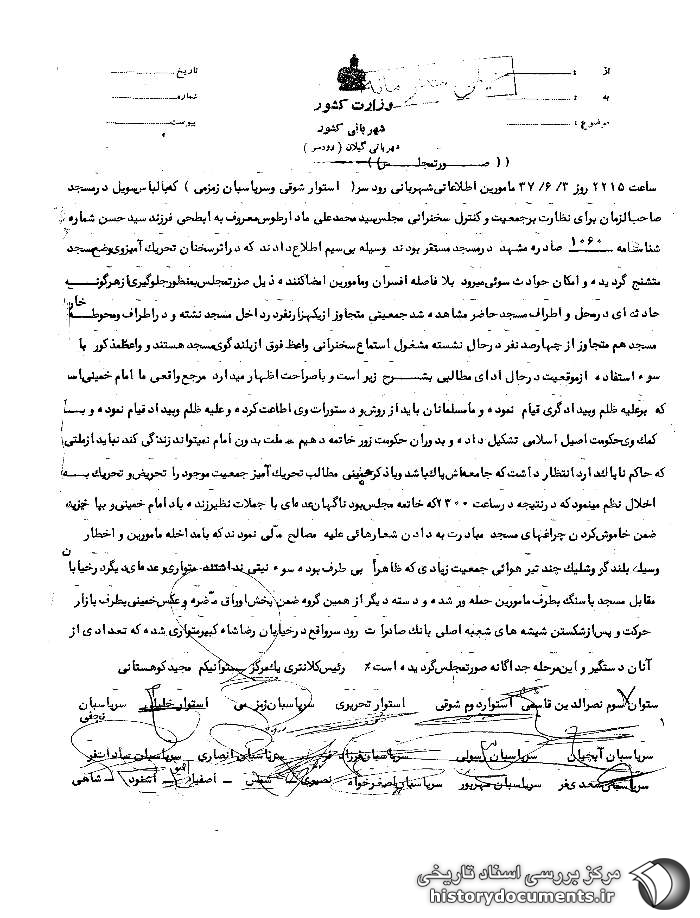 از :
تاریخ
به :
شماره
موضوع :
پیوست
خیلی محرمانه
وزارت کشور
شهربانی کشور
شهربانی گیلان ( رودسر )
(( صورتمجلس ))
ساعت ۲۲۱۵ روز ۳/ ۶/ ۳۷ مامورین اطلاعاتی شهربانی رودسر( استوار شوقی وسرپاسبان زمزمی ) که بالباس سویل درمسجد
صاحب الزمان برای نظارت برجمعیت و کنترل سخنرانی مجلس سید محمد علی ماد ارطوس معروف به ابطحی فرزند سید حسن شماره
شناسنامه ۱۰۶۰ صادره مشهد درمسجد مستقر بودند وسیله بی‌سیم اطلاع دادند که دراثر سخنان تحریک آمیزوی وضع مسجد
متشنج گردیده و امکان حوادث سوئی میرود بلا فاصله افسران ومامورین امضا کننده ذیل صورتمجلس بمنظور جلوگیری از هرگونه
حادثه ای درمحل و اطراف مسجد حاضر مشاهده شد جمعیتی متجاوز از یکهزار نفرد رداخل مسجد نشته و دراطراف ومحوطه خارج
مسجد هم متجاوز از چهارصد نفر درحال نشسته مشغول استماع سخنرانی واعظ فوق از بلندگوی مسجد هستند و واعظ مذکور با
سوء استفاده از موقعیت درحال ادای مطالبی بشرح زیر است و باصراحت اظهار میدارد مرجع واقعی ما امام خمینی است
که برعلیه ظلم وبیدادگری قیام نموده و ما مسلمانان باید از روش و دستورات وی اطاعت کرده و علیه ظلم وبیداد قیام نموده و با
کمک وی حکومت اصیل اسلامی تشکیل داده و بدوران حکومت زور خاتمه دهیم ملت بدون امام نمیتواند زندگی کند نباید از ملتی
که حاکم ناپاک دارد انتظار داشت که جامعه اش پاک باشد وباذکر خمینی مطالب تحریک آمیز جمعیت موجود را تحریض و تحریک به
اخلال نظم مینمود که درنتیجه درساعت ۲۳۰۰ که خاتمه مجلس بود ناگهان عده ای با جملات نظیر زنده باد امام خمینی و بپا خیزید
ضمن خاموش کردن چراغهای مسجد مبادرت به دادن شعارهائی علیه مصالح ملی نمودند که بامداخله مامورین و اخطار
وسیله بلندگو وشلیک چند تیر هوائی جمعیت زیادی که ظاهراً بی طرف بوده سوء نیتی نداشتند متواری و عده ای دیگر درخیابان
مقابل مسجد باسنگ بطرف مامورین حمله ور شده و دسته دیگر از همین گروه ضمن پخش اوراق مضره و عکس خمینی بطرف بازار
حرکت و پس از شکستن شیشه های شعبه اصلی بانک صادرات رودسر واقع درخیابان رضاشاه کبیر متواری شده که تعدادی از
آنان دستگیر و این مرحله جداگانه صورتمجلس گردیده است٪ رئیس کلانتری یک مرکز ستوانیکم مجید کوهستانی
ستوان سوم نصرالدین قاسمی استوار دوم شوقی استوار تحریری سرپاسبان زمزمی استوار سرپاسبان نجفی
سرپاسبان آبچیان سرپاسبان رسولی سرپاسبان سرپاسبان انصاری سرپاسبان
سرپاسبان سعدی فر سرپاسبان مهرپور سرپاسبان اصغرخواه نصیری ـ ـ اصفیا ـ ـ شاهی
مرکز بررسی اسناد تاریخی
historydocuments.ir